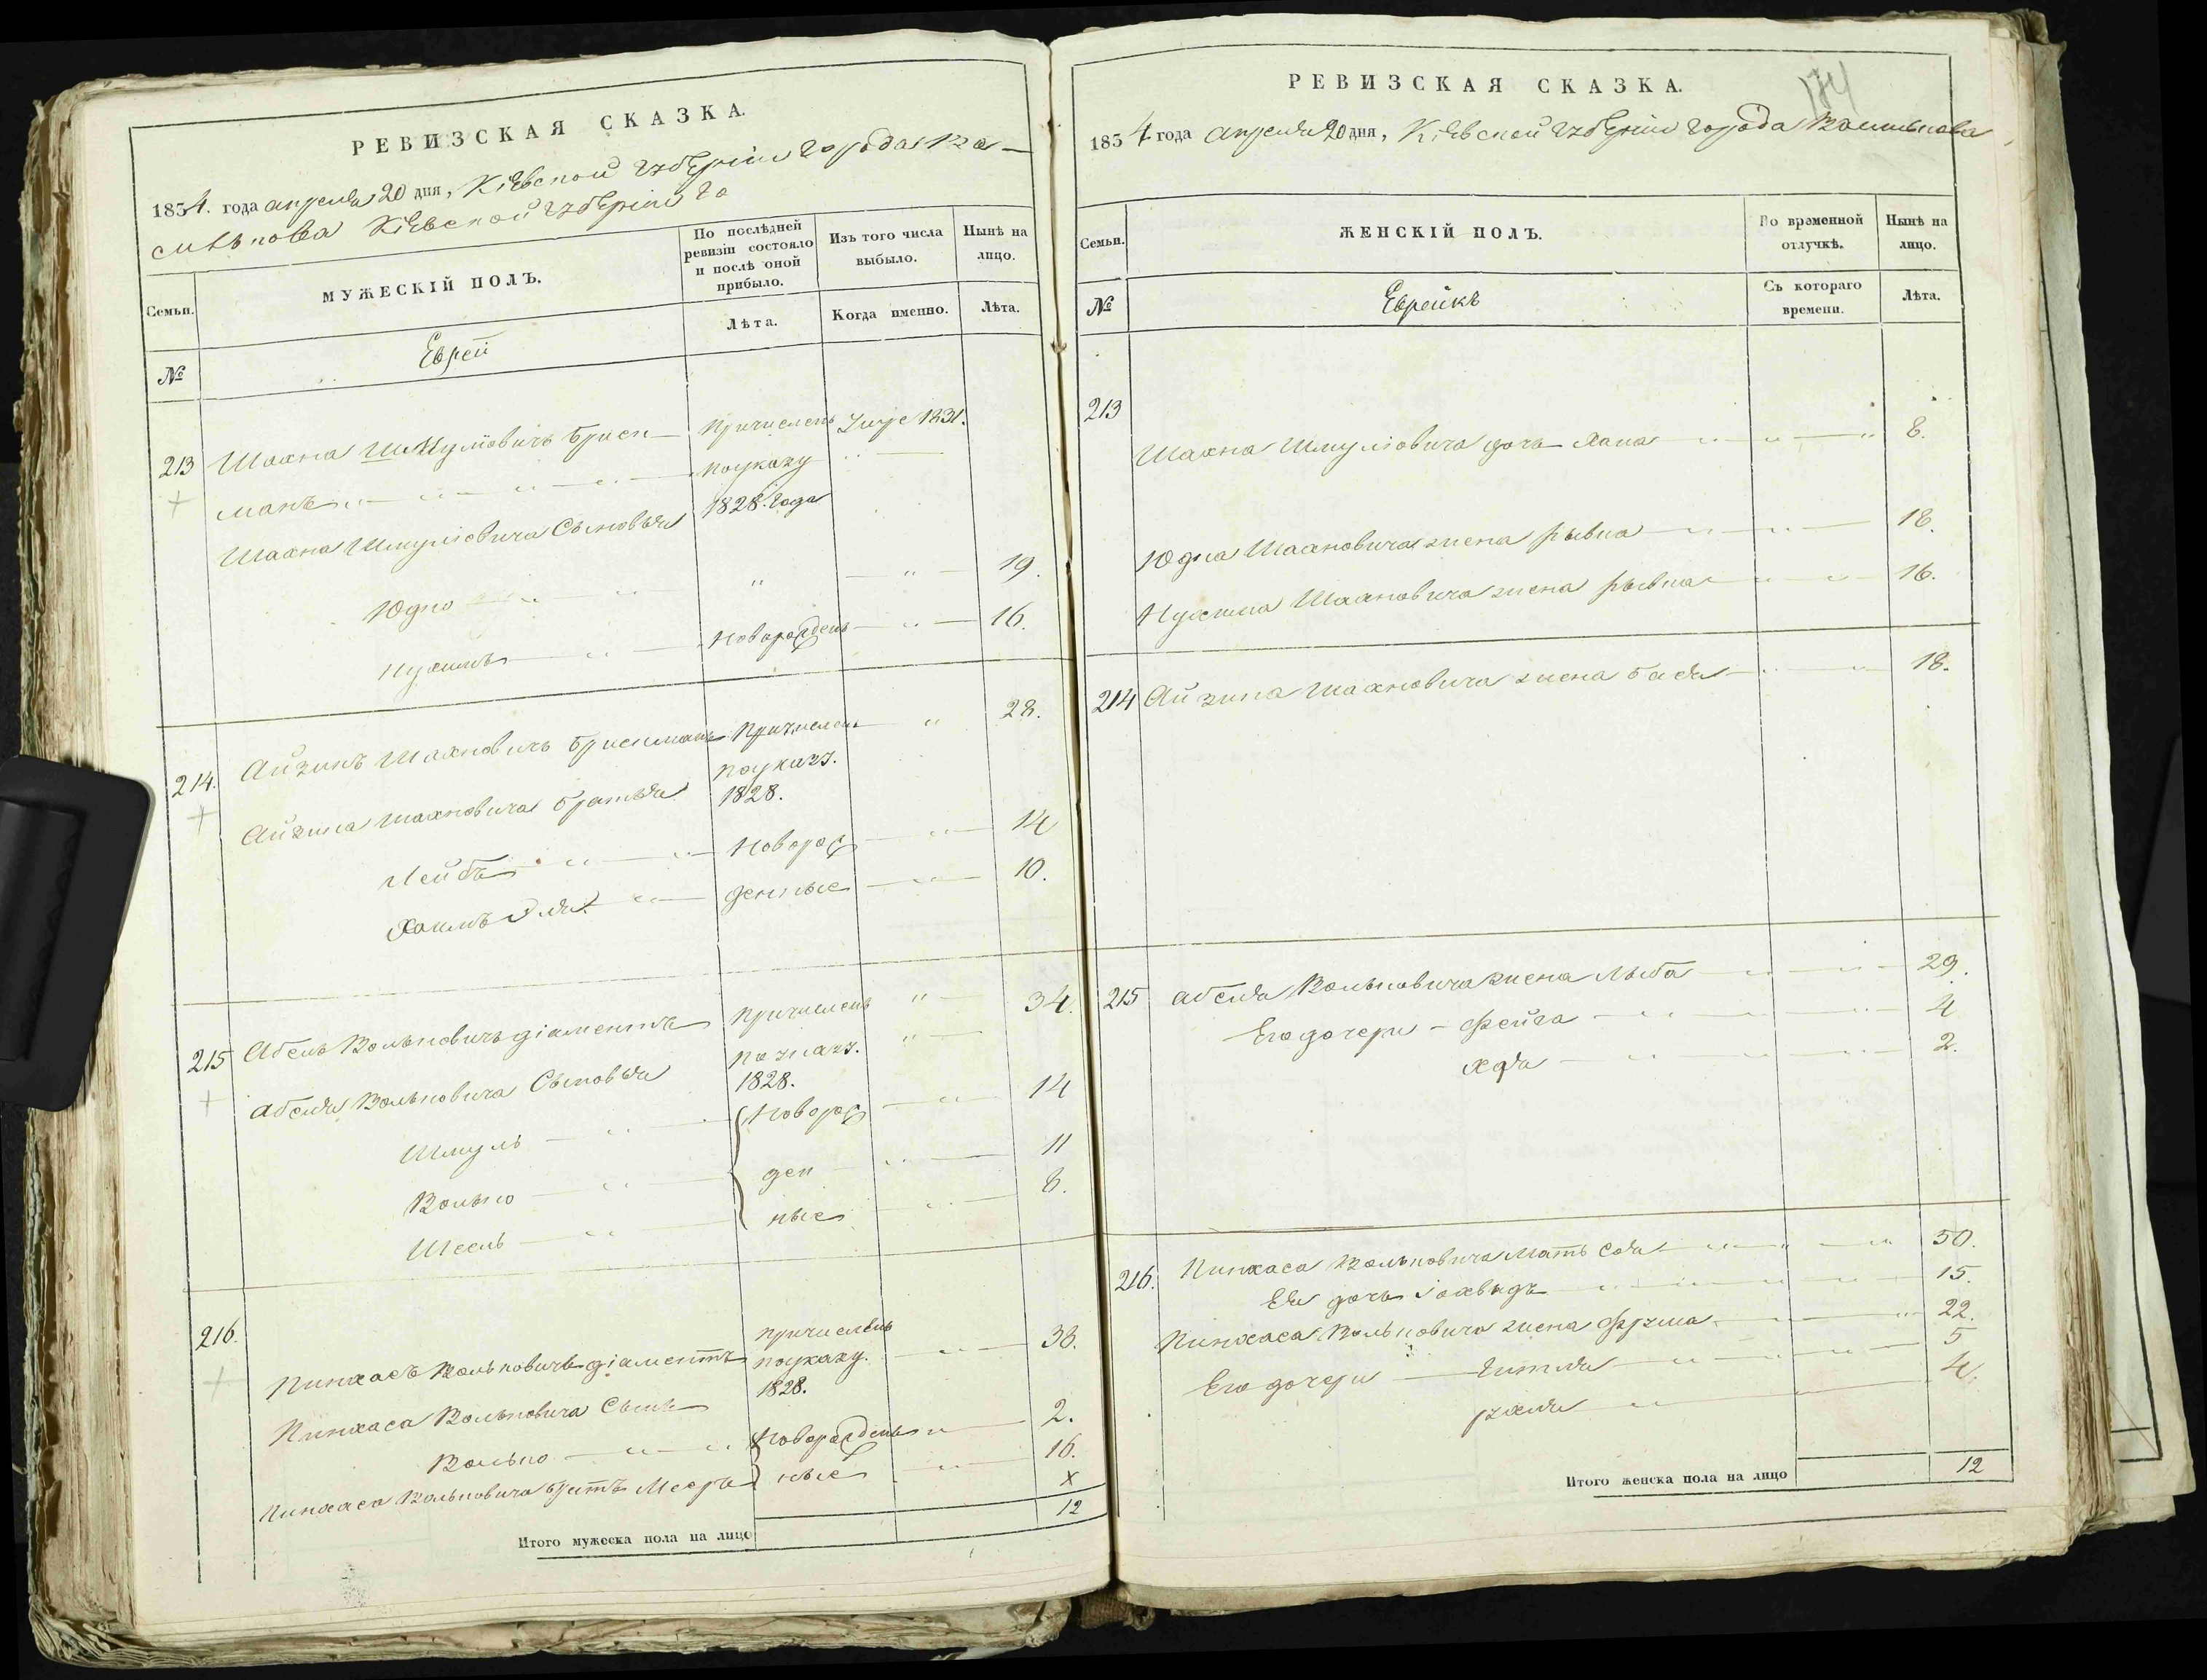 РЕВИЗСКАЯ СКАЗКА.
1834. года апреля 20 дня, Кіевской губерніи города Ва-
силькова Кіевской губерніи го
Семьи.
МУЖЕСКІЙ ПОЛЪ.
По послѣдней ревизіи состояло и послѣ оной прибыло.
Изъ того числа выбыло.
Нынѣ на лицо.
№
Еврей
Лѣта.
Когда именно.
Лѣта.
213 Шахна Шмулiовичъ Бриск- Причисленъ 1831.
манъ по указу
Шахна Шмулiовича Сыновья 1828. года
Юдко " " 19.
Нухимъ Новорожденъ " 16.
214. Айзикъ Шахновичъ Брискманъ Причисленъ " 28.
по указ.
Айзика Шахновича братья 1828.
Лейба Новорож " 14
Хаимъ Эля денные " 10.
215 Абель Вольковичъ діаментъ причисленъ " 34.
по указ. "
Абеля Вольковича Сыновья 1828.
Шмуль Новорож " 14
Волько ден " 11
ные " 8.
216. причисленъ
Пинхасъ Вольковичъ діаментъ по указу. " 38.
1828.
Пинхаса Вольковича Сынъ
Волько Новорожден " 2.
Пинхаса Вольковича братъ Мееръ ные " 16.
х
Итого мужеска пола на лицо 12
РЕВИЗСКАЯ СКАЗКА.
174
1834 года апреля 20 дня, Кіевской губерніи города Василькова
Семьи.
ЖЕНСКІЙ ПОЛЪ.
Во временной отлучкѣ.
Нынѣ на лицо.
№
Еврейкѣ
Съ котораго времени.
Лѣта.
213
Шахна Шмулiовича дочь Хана " " " 8.
Юдка Шахновича жена Рывка " " 18.
Нухима Шахновича жена Рывка " " 16.
214 Айзика Шахновича жена Бася " " 18.
215 Абеля Вольковича жена Лыба " " 29.
Его дочери - Фейга " " 4
Хая " " 2.
216. Пинхаса Вольковича Мать Сося " " " 50.
Ея дочь Iохвидъ " " " 15.
Пинхаса Вольковича жена Фрума " 22.
Его дочери - Гитля " " " 5
Рухля " 4.
Итого женска пола на лицо 12